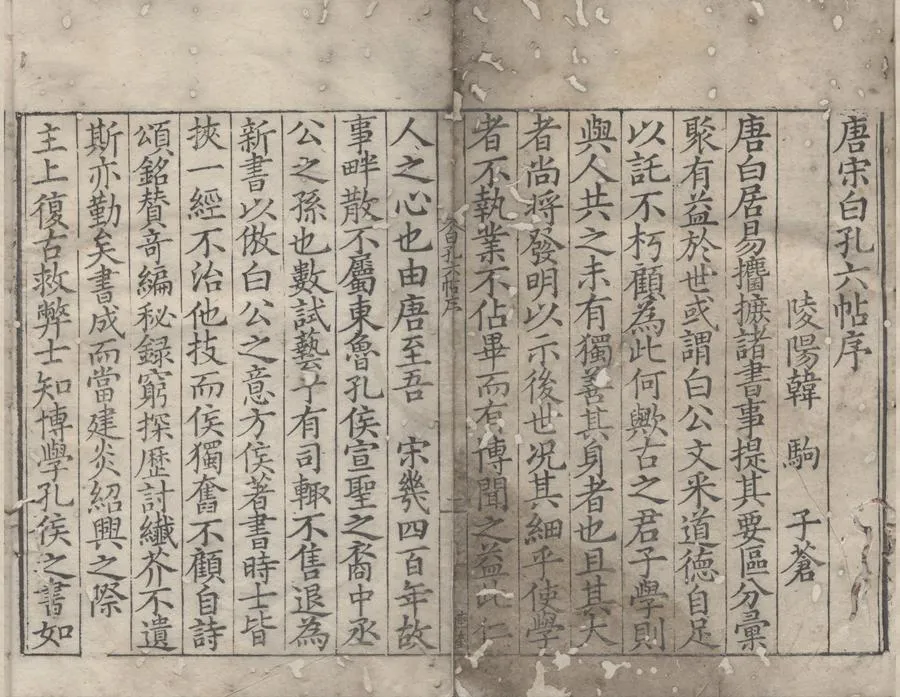 唐宋白孔六帖序
陵陽韓 駒 子蒼
唐白居易攟摭諸書事提其要區分彙
聚有益於世或謂白公文釆道德自足
以託不朽顧為此何歟古之君子學則
與人共之未有獨善其身者也且其大
者尚將發明以示後世况其細乎使學
者不執業不佔畢而有博聞之益此仁
白孔六帖序
一
人之心也由唐至吾 宋幾四百年故
事畔散不屬東魯孔侯宣聖之裔中丞
公之孫也數試藝于有司輙不售退為
新書以倣白公之意方侯著書時士皆
挾一經不治他技而侯獨奮不顧自詩
頌銘賛竒編秘録窮探歴討纎芥不遺
斯亦勤矣書成而當建炎紹興之際
主上復古救弊士知博學孔侯之書如